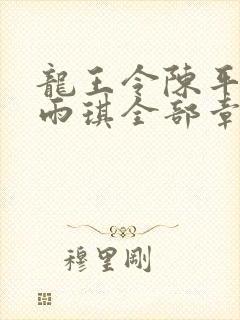 龍王令陳平
雨琪全部章
穆里剛